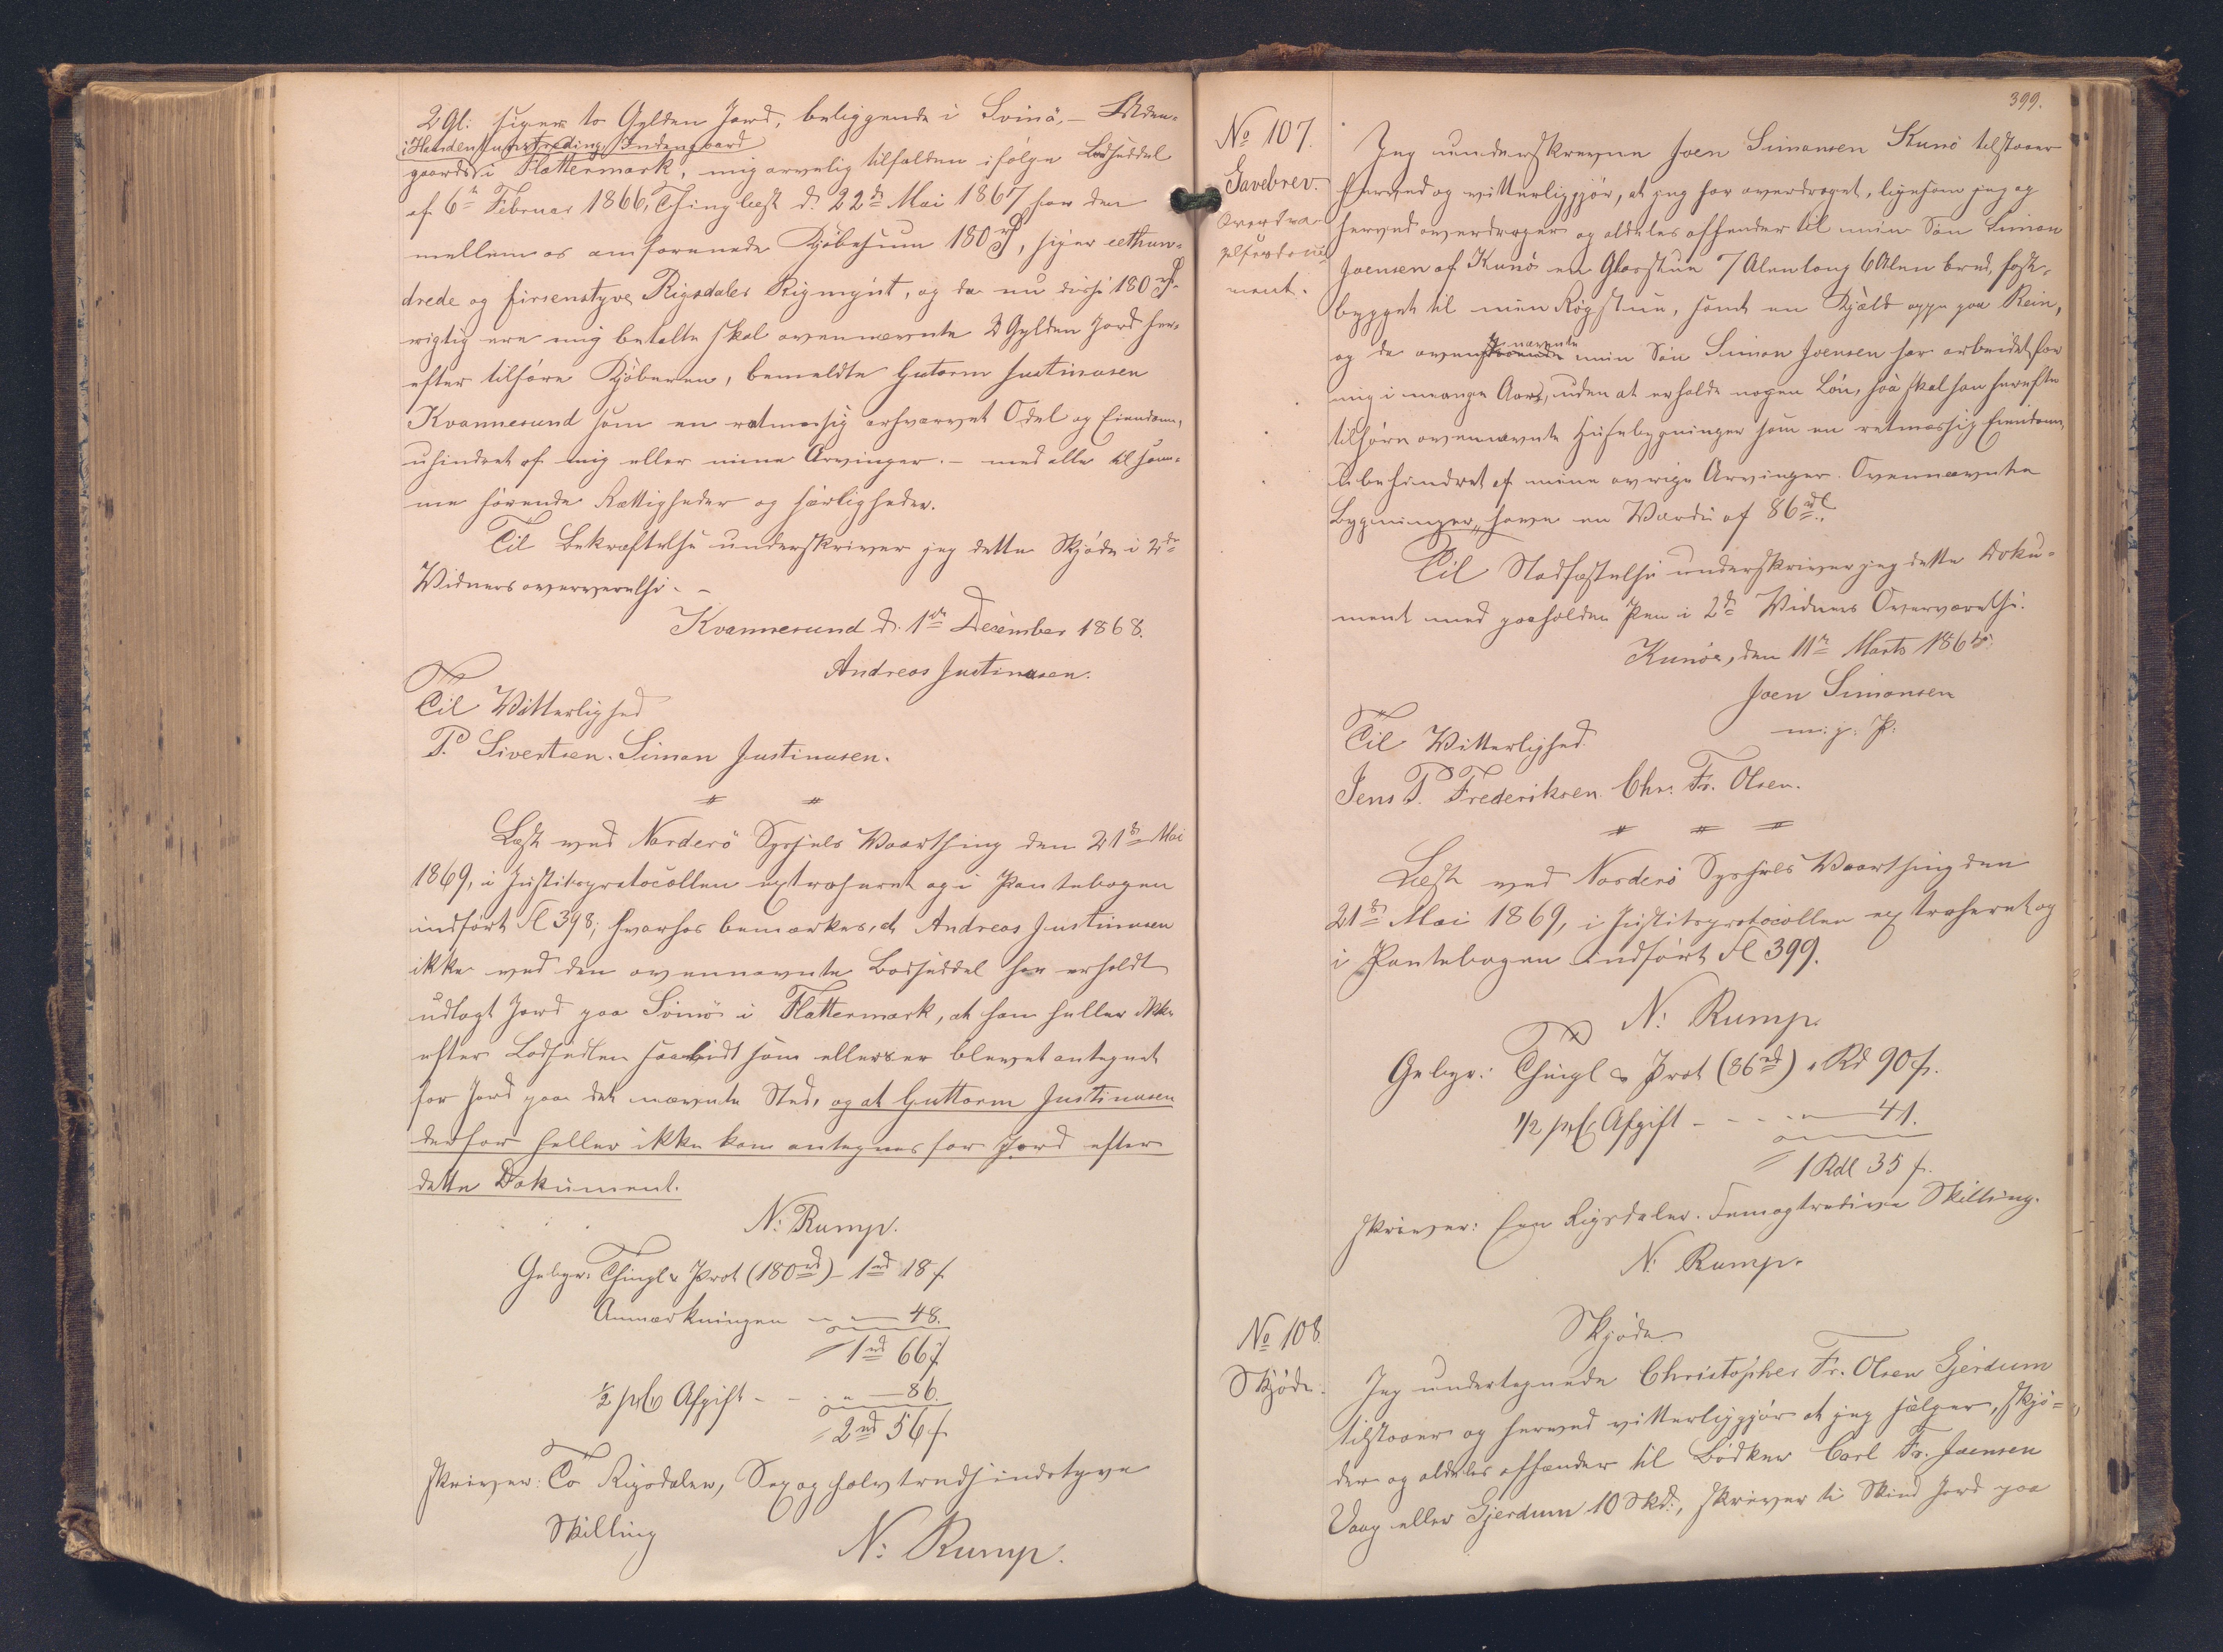 2 Gl: siger to Gylden Jord, beliggende i Svinö, – Uden-
i Handen Indengaard
gaards i Flattermark, mig arvelig tilfalden ifølge Lodseddel
af 6te Februar 1866, Thinglæst d. 22de Mai 1867 for den
mellem os omforenede Kjøbesum 180 rd, siger eethun-
drede og firsenstyve Rigsdaler Rigmynt, og da nu disse 180 rd
rigtig ere mig betalte skal ovennævnte 2 Gylden Jord her-
efter tilhøre Kjøberen, bemeldte Gutorm Justinusen
Kvannesund som en retmæssig erhvervet Odel og Eiendom,
uhindret af mig eller mine Arvinger. – med alle til sam-
me hørende Rettigheder og herligheder.
Til Bekræftelse underskriver jeg dette Skjøde i 2de
Vidners overværelse. –
Kvannesund d. 1ste December 1868.
Andreas Justinusen.
Til Vitterlighed
P. Sivertsen. Simon Justinusen.
Læst ved Norderö Syssels Vaarthing den 21de Mai
1869, i Justitsprotocollen extraheret og i Pantebogen
indført Fl 398; hvorhos bemærkes, at Andreas Justinusen
ikke ved den ovennævnte Lodseddel har erholdt
udlagt Jord paa Svinö i Flattermark, at han heller ikke
efter Lodsedlen saavidt som ellers er blevet antegnet
for Jord paa det nævnte Sted, og at Guttorm Justinusen
derfor heller ikke kan antegnes for Jord efter
dette Dokument.
N: Rump.
Gebyr: Thingl & Prot (180 rd) – 1 rd 18 s
Anmærkningen – " – 48.
1 rd 66 s
½ pCt Afgift – – " – 86.
2 rd 56 s
skriver: To Rigsdaler, Sex og halvtredsindstyve
Skilling
N: Rump.
399.
No 107.
Gavebrev.
Overdra-
gelsesdocu
ment.
Jeg underskrevne Joen Simonsen Kunö tilstaaer
herved og vitterliggjør, at jeg har overdraget, ligesom jeg og
herved overdrager og aldeles afhender til min Søn Simon
Joensen af Kunö en Glasstue 7 Alen lang 6 Alen bred, fast-
bygget til min Røgstue, samt en Kjald oppe paa Rein,
og da ovennævnte min Søn Simon Joensen har arbeidet for
mig i mange Aar, uden at erholde nogen Løn, saa skal han herefter
tilhøre ovennævnte Husebygninger som en retmæssig Eiendom,
Ubehindret af mine øvrige Arvinger. Ovennævnte
Bygninger, have en Værdi af 86 rdl.
Til Stadfæstelse underskriver jeg dette Doku-
ment med paaholden Pen i 2de Vidners Overværelse.
Kunöe, den 11te Marts 1865.
Joen Simonsen
m: p: P:
Til Vitterlighed.
Jens P. Frederiksen. Chr. Fr. Olsen.
Læst ved Norderö Syssels Vaarthing den
21de Mai 1869, i Justitsprotocollen extraheret og
i Pantebogen indført Fl 399.
N: Rump.
Gebyr: Thingl & Prot (86 rd) " Rd 90 s.
1/2 pCt Afgift – – – " – 41.
1 Rdl 35 s.
skriver: Een Rigsdaler. Femogtredive Skilling.
N. Rump.
No 108
Skjøde.
Skjøde.
Jeg undertegnede Christopher Fr. Olsen Gjerdum
tilstaaer og herved vitterliggjør at jeg sælger, skjø-
der og aldeles afhænder til Bødker Carl Fr. Joensen
Vaag eller Gjerdum 10 Skd:, skriver ti Skind Jord paa